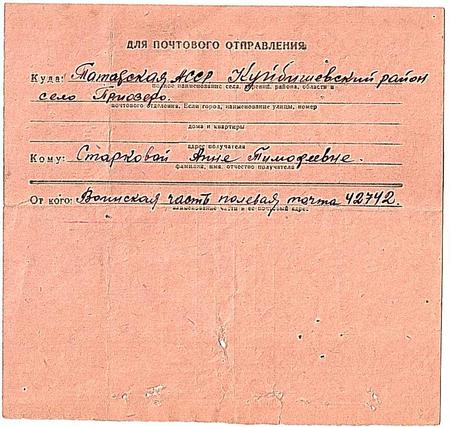 ДЛЯ ПОЧТОВОГО ОТПРАВЛЕНИЯ
Куда: Татарская АССР Куйбишевский район
полное наименование села, района, области и
село Приозеро.
почтового отделения. Если город, наименование улицы, номер
дома и квартиры
адрес получателя
Кому: Старковой Анне Тимофеевне.
фамилия, имя, отчество получателя
От кого: Воинская часть полевая почта 42742.
наименование части и ее почтовый адрес